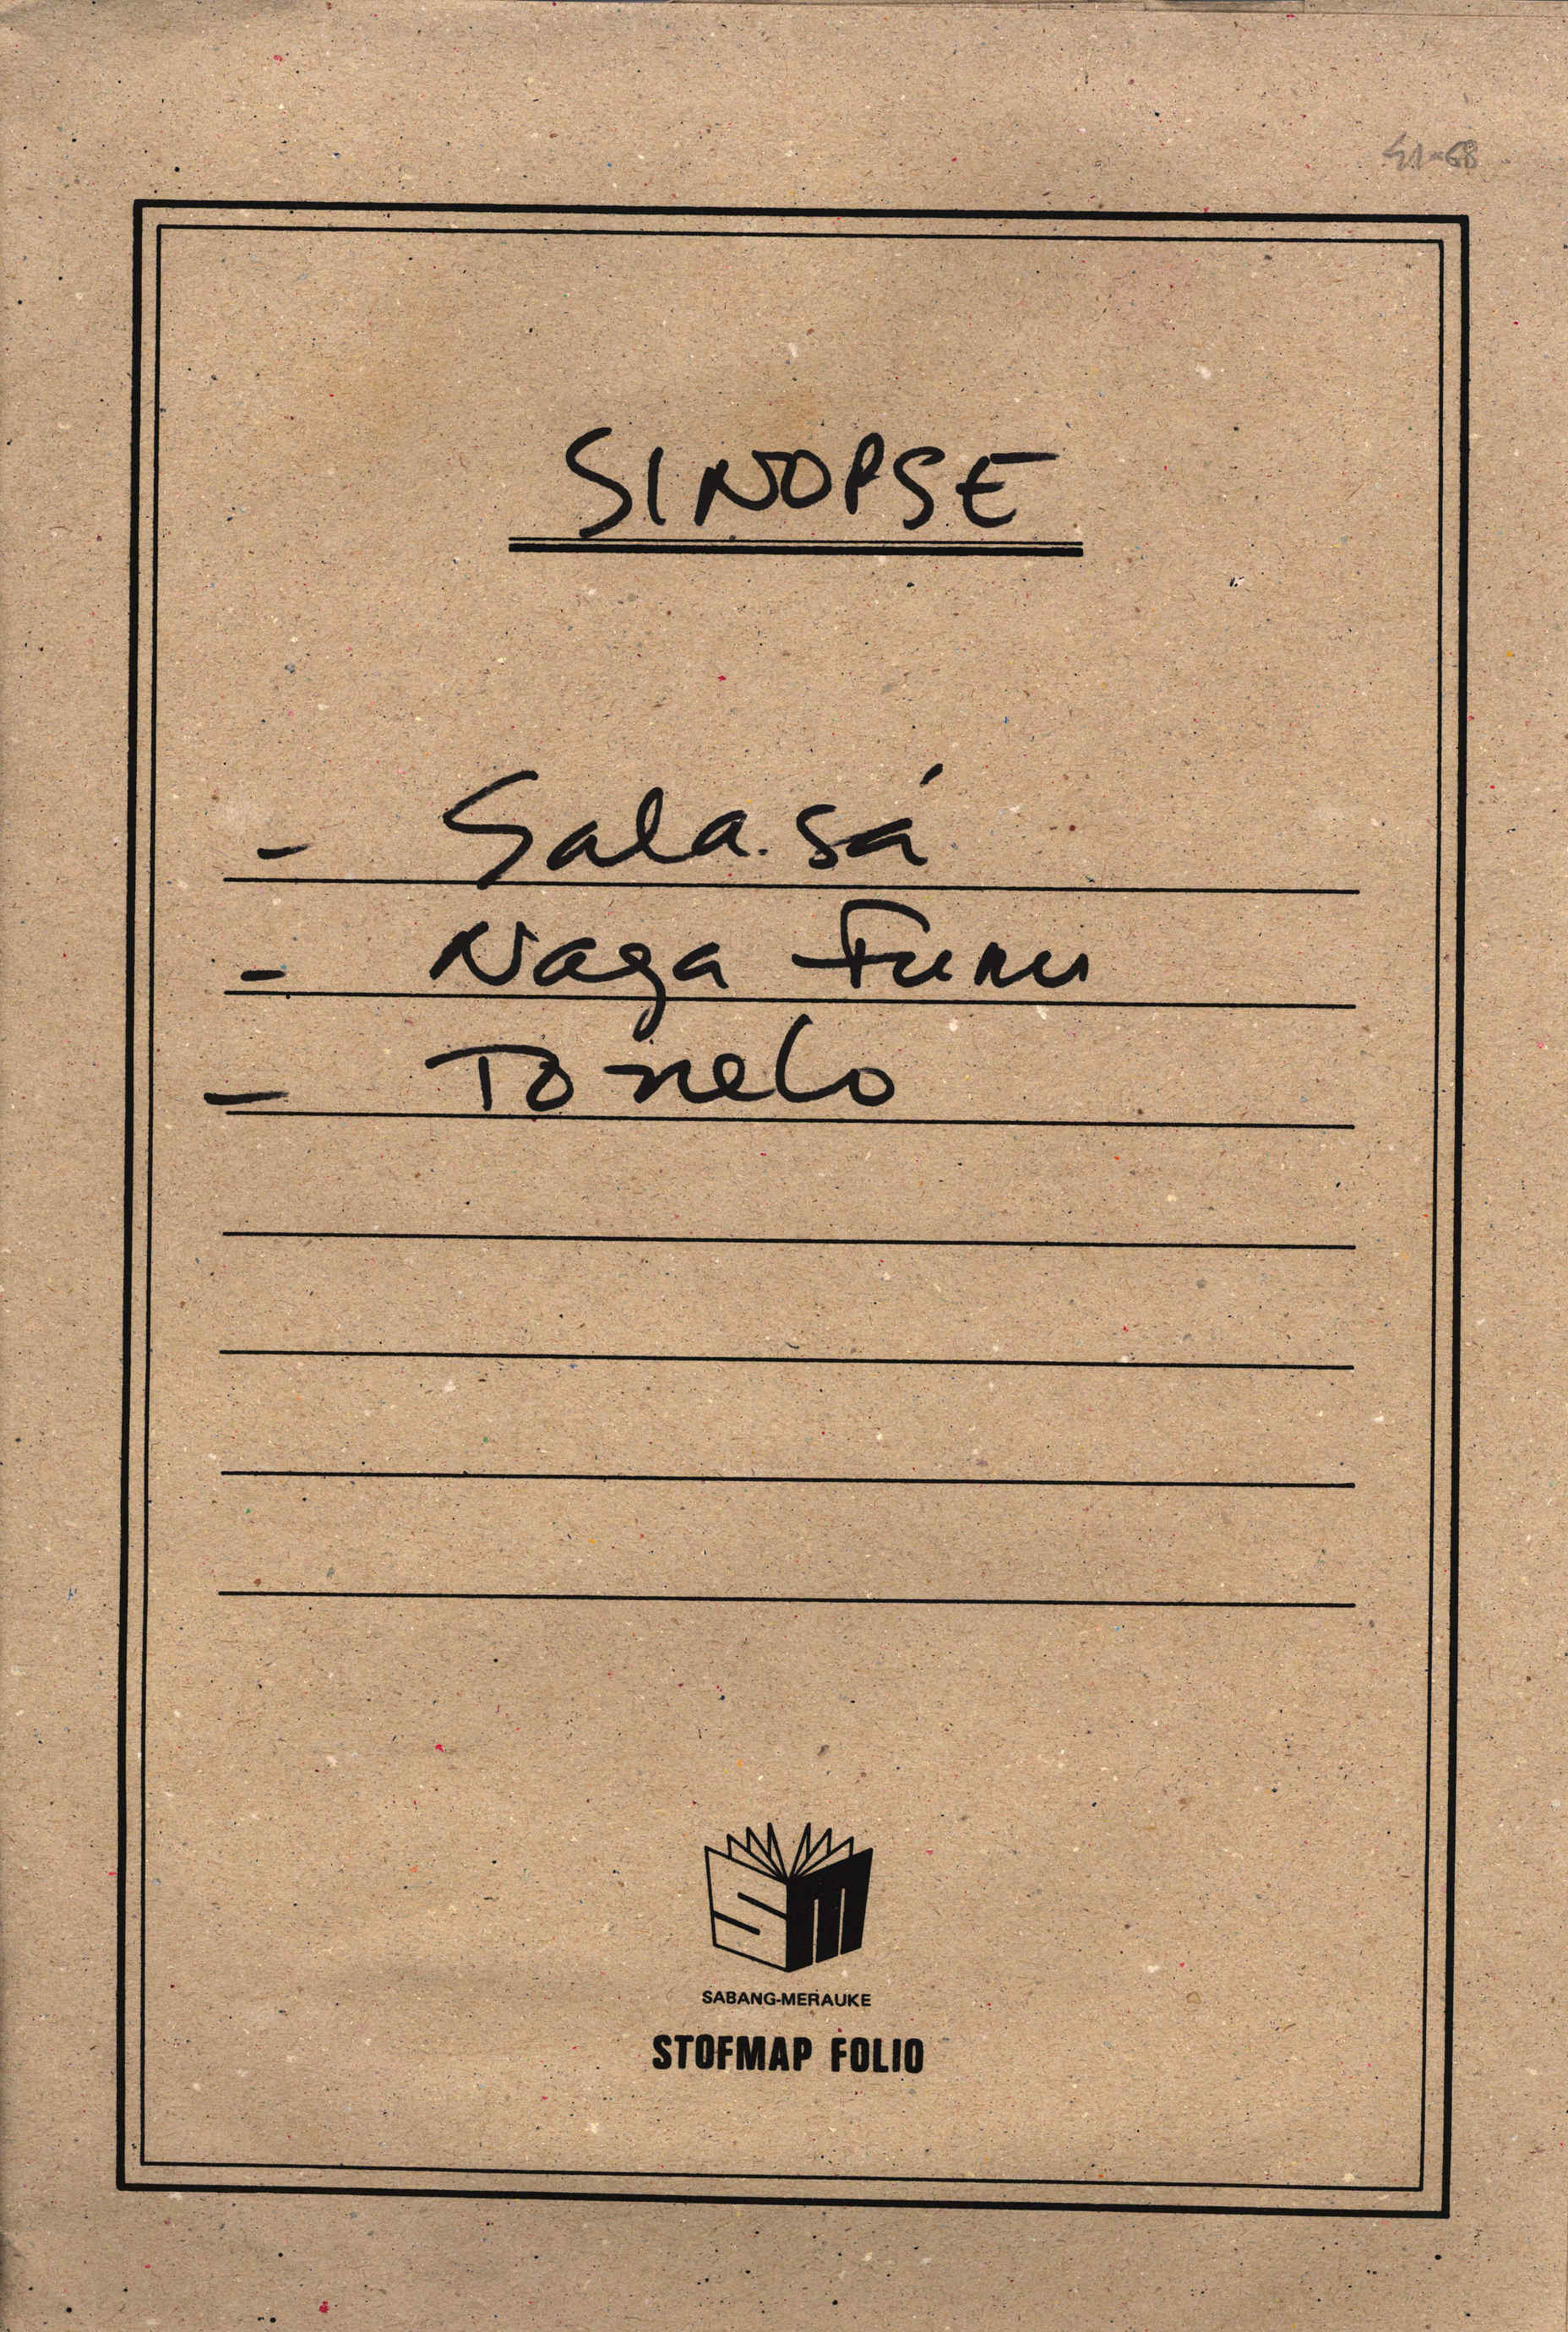 SINOPSE
- Sala. sá
- Naga Funu
- Tonelo
SM
SABANG-MERAUKE
STOFMAP FOLIO